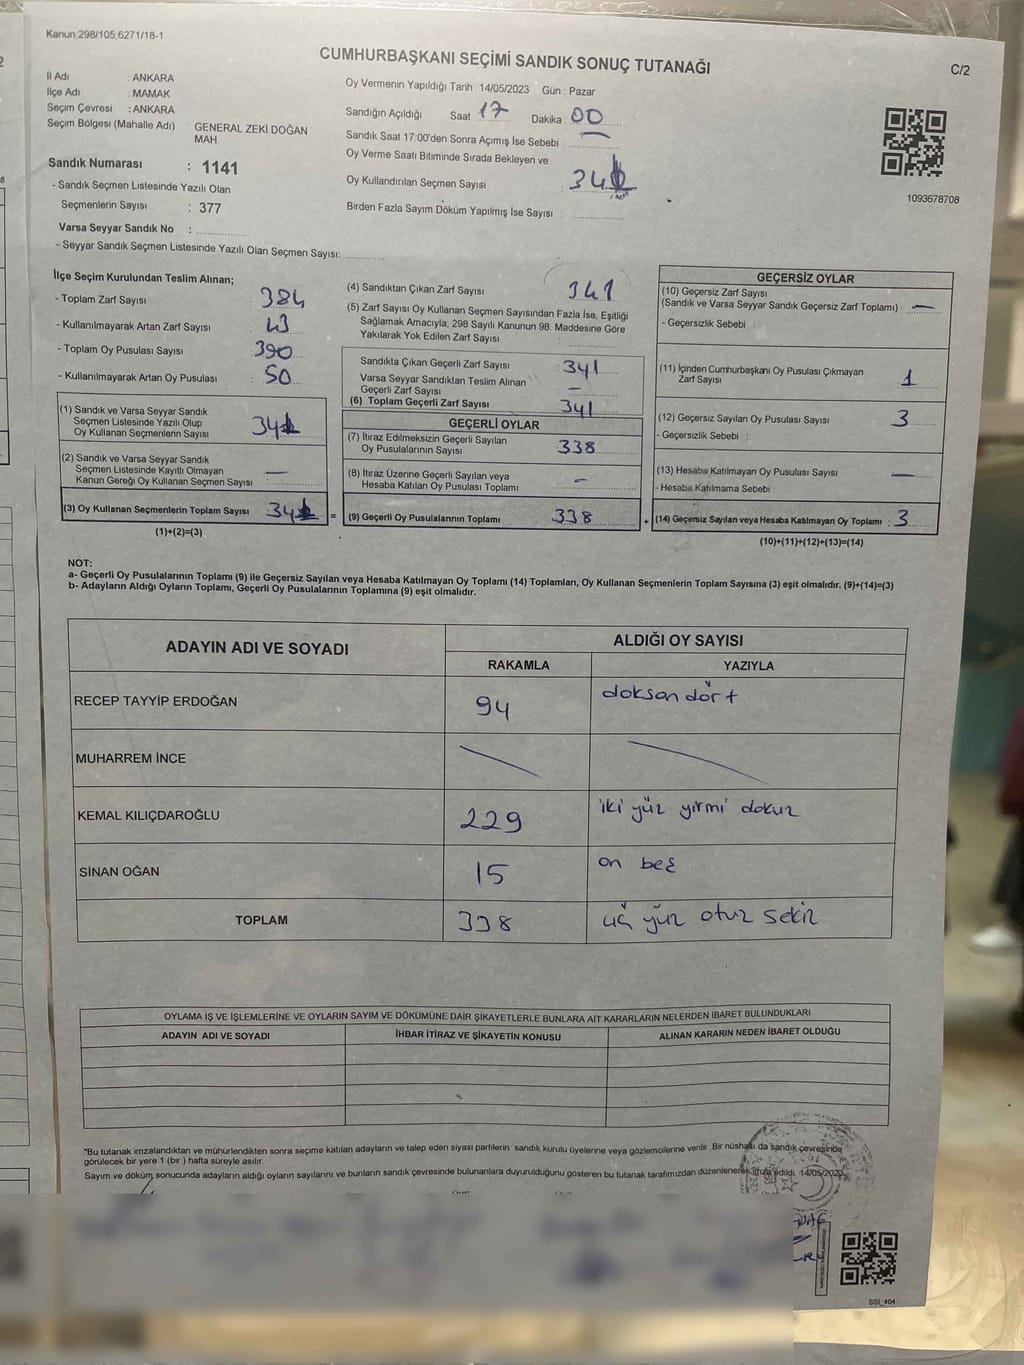 Kanun;298/105;6271/18-1
CUMHURBAŞKANI SEÇİMİ SANDIK SONUÇ TUTANAĞI
C/2
İl Adı : ANKARA
İlçe Adı : MAMAK
Seçim Çevresi : ANKARA
Seçim Bölgesi (Mahalle Adı) : GENERAL ZEKİ DOĞAN
MAH.
Sandık Numarası : 1141
- Sandık Seçmen Listesinde Yazılı Olan
Seçmenlerin Sayısı : 377
Varsa Seyyar Sandık No :
- Seyyar Sandık Seçmen Listesinde Yazılı Olan Seçmen Sayısı:
Oy Vermenin Yapıldığı Tarih : 14/05/2023 Gün : Pazar
Sandığın Açıldığı Saat 17 Dakika 00
Sandık Saat 17:00'den Sonra Açımış İse Sebebi : —
Oy Verme Saati Bitiminde Sırada Bekleyen ve
Oy Kullandırılan Seçmen Sayısı
Birden Fazla Sayım Döküm Yapılmış İse Sayısı :
1093678708
İlçe Seçim Kurulundan Teslim Alınan;
- Toplam Zarf Sayısı : 384
- Kullanılmayarak Artan Zarf Sayısı : 43
- Toplam Oy Pusulası Sayısı : 390
- Kullanılmayarak Artan Oy Pusulası : 50
(1) Sandık ve Varsa Seyyar Sandık
Seçmen Listesinde Yazılı Olup
Oy Kullanan Seçmenlerin Sayısı :
(2) Sandık ve Varsa Seyyar Sandık
Seçmen Listesinde Kayıtlı Olmayan
Kanun Gereği Oy Kullanan Seçmen Sayısı : —
(3) Oy Kullanan Seçmenlerin Toplam Sayısı
(1)+(2)=(3)
=
(4) Sandıktan Çıkan Zarf Sayısı : 341
(5) Zarf Sayısı Oy Kullanan Seçmen Sayısından Fazla İse, Eşitliği
Sağlamak Amacıyla; 298 Sayılı Kanunun 98. Maddesine Göre
Yakılarak Yok Edilen Zarf Sayısı :
Sandıkta Çıkan Geçerli Zarf Sayısı : 341
Varsa Seyyar Sandıktan Teslim Alınan
Geçerli Zarf Sayısı : —
(6) Toplam Geçerli Zarf Sayısı : 341
GEÇERLİ OYLAR
(7) İtiraz Edilmeksizin Geçerli Sayılan
Oy Pusulalarının Sayısı : 338
(8) İtiraz Üzerine Geçerli Sayılan veya
Hesaba Katılan Oy Pusulası Toplamı : —
(9) Geçerli Oy Pusulalarının Toplamı : 338
+
GEÇERSİZ OYLAR
(10) Geçersiz Zarf Sayısı
(Sandık ve Varsa Seyyar Sandık Geçersiz Zarf Toplamı) : —
- Geçersizlik Sebebi :
(11) İçinden Cumhurbaşkanı Oy Pusulası Çıkmayan
Zarf Sayısı : 1
(12) Geçersiz Sayılan Oy Pusulası Sayısı : 3
- Geçersizlik Sebebi :
(13) Hesaba Katılmayan Oy Pusulası Sayısı : —
- Hesaba Katılmama Sebebi :
(14) Geçersiz Sayılan veya Hesaba Katılmayan Oy Toplamı : 3
(10)+(11)+(12)+(13)=(14)
NOT:
a- Geçerli Oy Pusulalarının Toplamı (9) ile Geçersiz Sayılan veya Hesaba Katılmayan Oy Toplamı (14) Toplamları, Oy Kullanan Seçmenlerin Toplam Sayısına (3) eşit olmalıdır. (9)+(14)=(3)
b- Adayların Aldığı Oyların Toplamı, Geçerli Oy Pusulalarının Toplamına (9) eşit olmalıdır.
ADAYIN ADI VE SOYADI ALDIĞI OY SAYISI
RAKAMLA YAZIYLA
RECEP TAYYİP ERDOĞAN 94 doksan dört
MUHARREM İNCE
KEMAL KILIÇDAROĞLU 229 iki yüz yirmi dokuz
SİNAN OĞAN 15 on beş
TOPLAM 338 üç yüz otuz sekiz
OYLAMA İŞ VE İŞLEMLERİNE VE OYLARIN SAYIM VE DÖKÜMÜNE DAİR ŞİKAYETLERLE BUNLARA AİT KARARLARIN NELERDEN İBARET BULUNDUKLARI
ADAYIN ADI VE SOYADI İHBAR İTİRAZ VE ŞİKAYETİN KONUSU ALINAN KARARIN NEDEN İBARET OLDUĞU
"Bu tutanak imzalandıktan ve mühürlendikten sonra seçime katılan adayların ve talep eden siyasi partilerin sandık kurulu üyelerine veya gözlemcilerine verilir. Bir nüshası da sandık çevresinde
görülecek bir yere 1 (bir) hafta süreyle asılır.
Sayım ve döküm sonucunda adayların aldığı oyların sayılarını ve bunların sandık çevresinde bulunanlara duyurulduğunu gösteren bu tutanak tarafımızdan düzenlenerek imza edildi. 14/05/2023
SSI_404